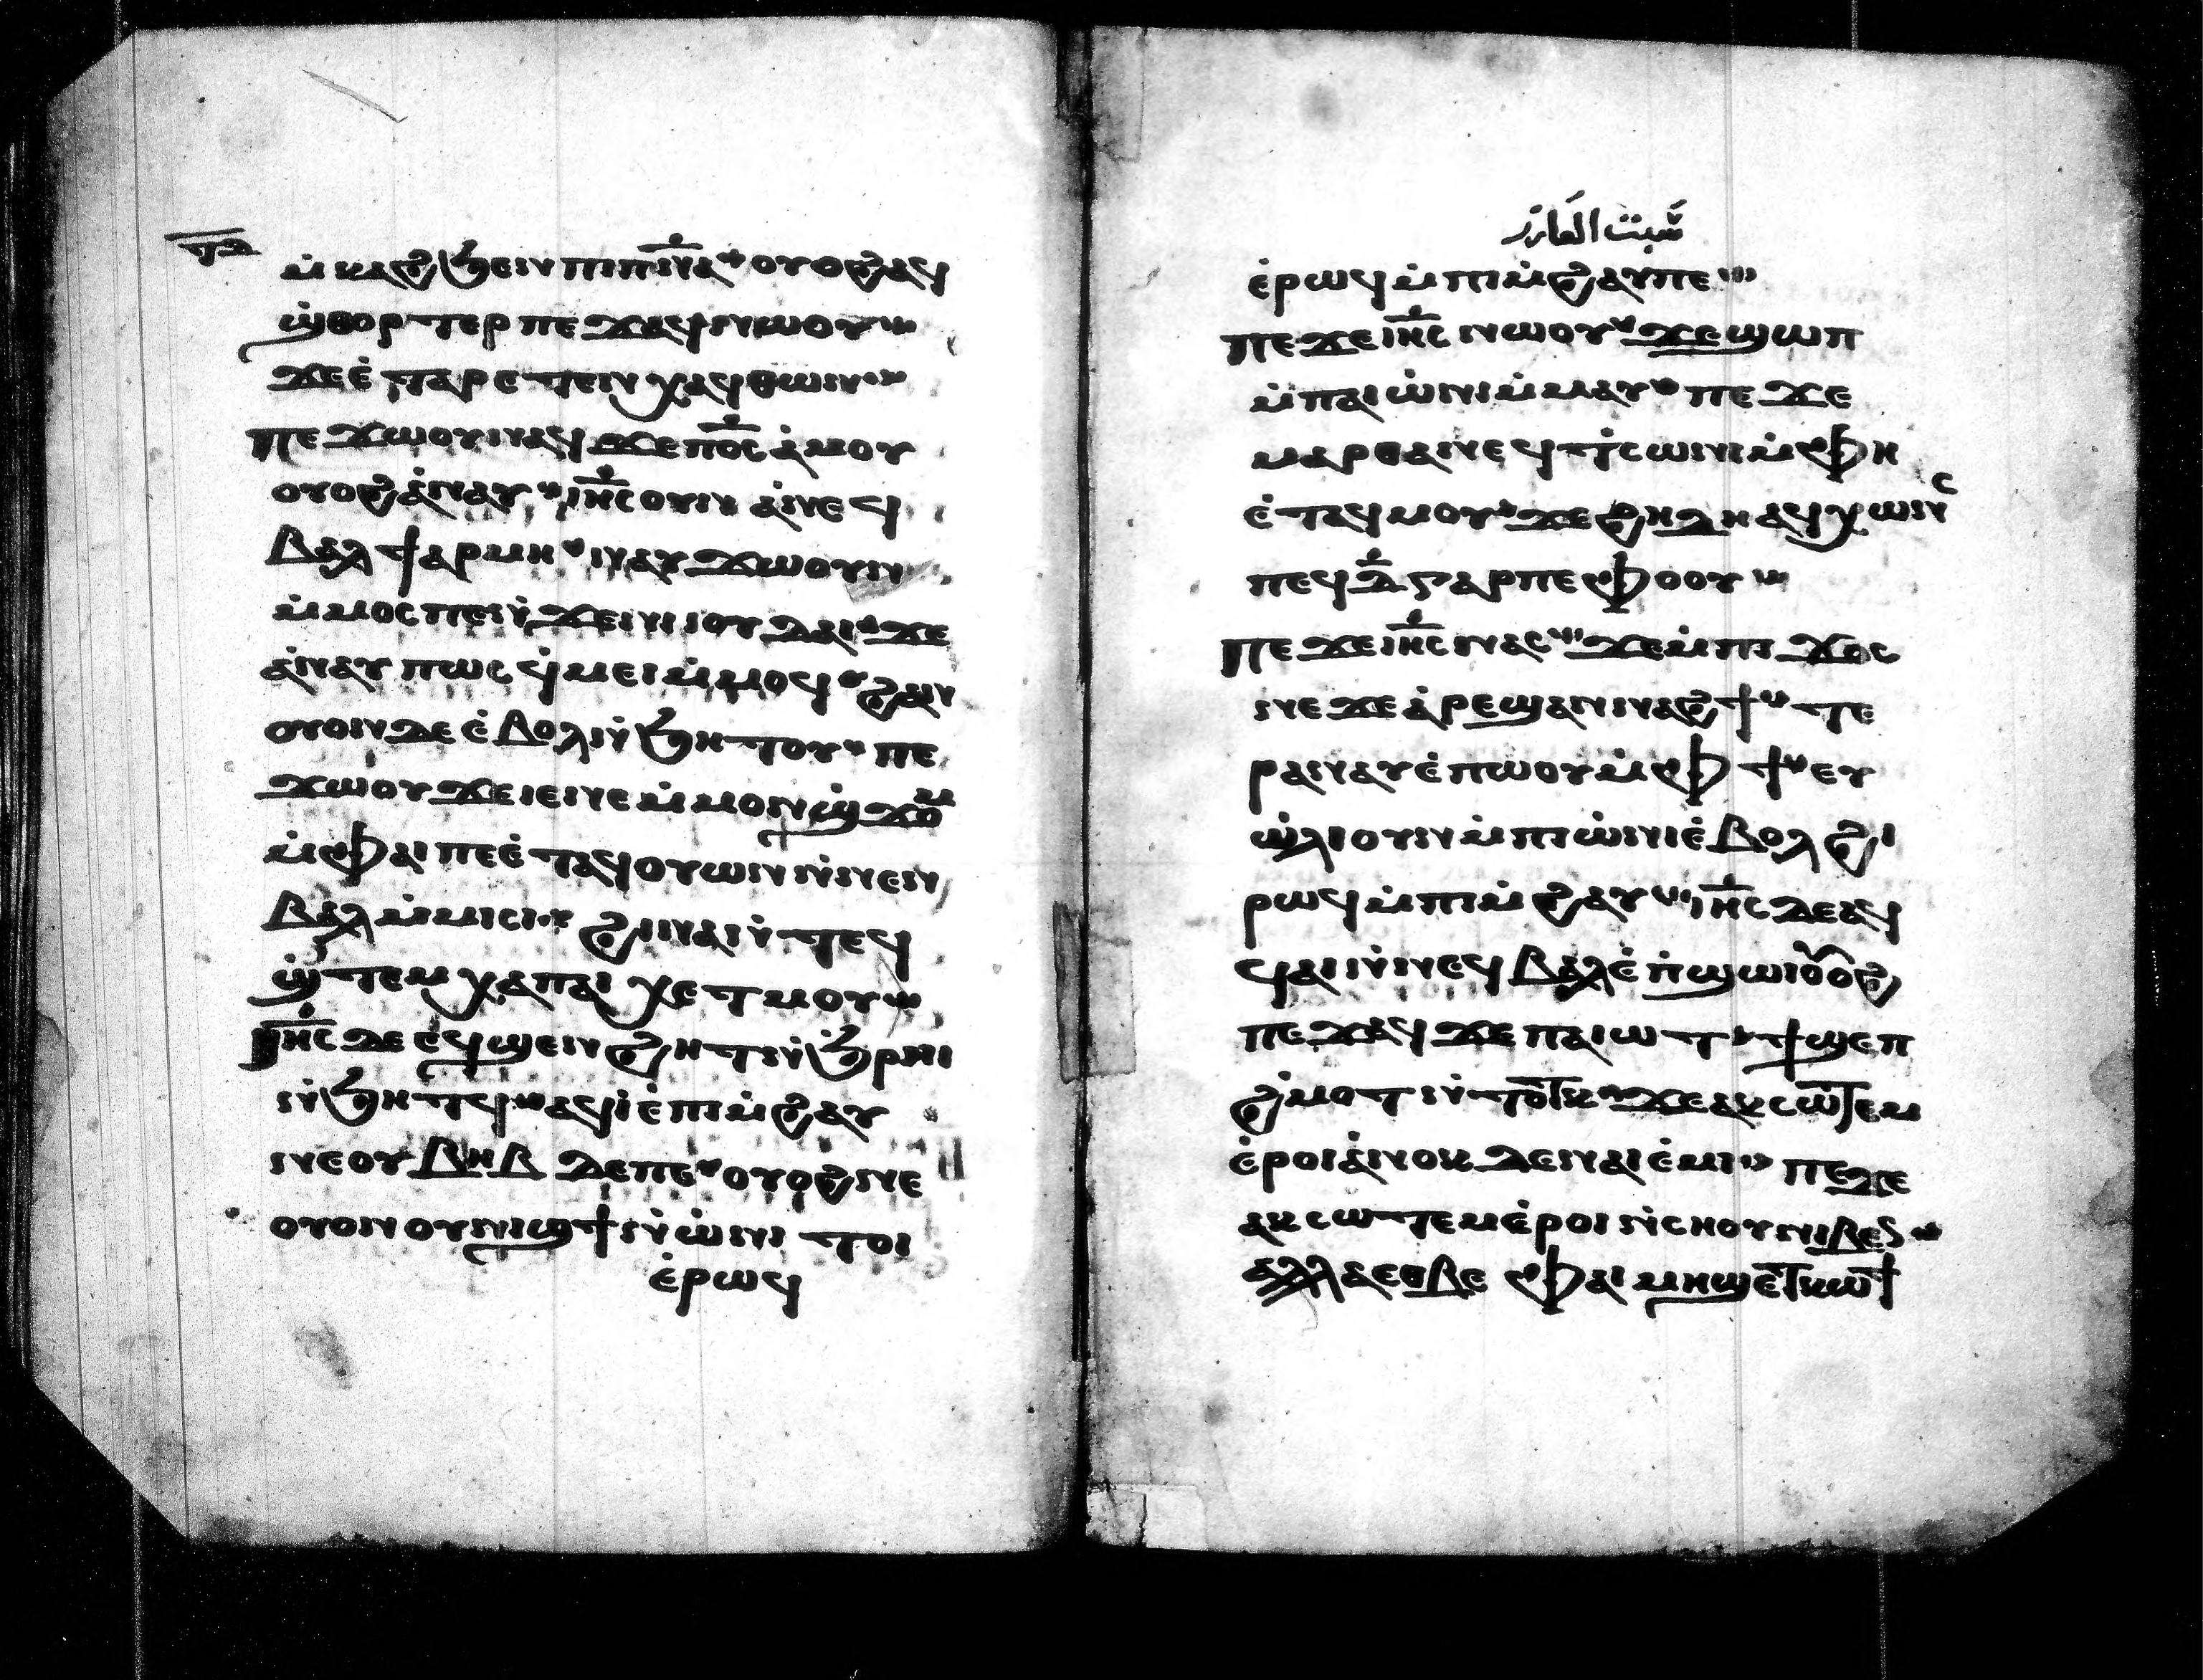 ⲙ̀ⲕⲁϩϧⲉⲛⲡⲓⲡ̅ⲛ̅ⲁ̅ⲟⲩⲟϩⲁϥ
ϣ̀ⲑⲟⲣⲧⲉⲣⲡⲉϫⲁϥⲛⲱⲟⲩ
ϫⲉⲉ̀ⲧⲁⲣⲉⲧⲉⲛⲭⲁϥⲑⲱⲛ
ⲡⲉϫⲱⲟⲩⲛⲁϥϫⲉⲡ⳪ⲁ̀ⲙⲟⲩ
ⲟⲩⲟϩⲁ̀ⲛⲁⲩⲓⲏ̅ⲥⲟⲩⲛⲁ̀ⲛⲉϥ
ⲃⲁⲗϯⲁⲣⲙⲏⲛⲁⲩϫⲱⲟⲩⲛ
ⲙ̀ⲙⲟⲥⲡⲉⲛ̀ϫⲉⲛⲓⲓⲟⲩⲇⲁⲓϫⲉ
ⲁ̀ⲛⲁⲩⲡⲱⲥϥ̀ⲙⲉⲓⲙ̀ⲙⲟϥϩⲁⲛ
ⲟⲩⲟⲛⲇⲉⲉ̀ⲃⲟⲗⲛ̀ϧⲏⲧⲟⲩⲡⲉ
ϫⲱⲟⲩϫⲉⲓⲉⲛⲉⲙ̀ⲙⲟⲛϣ̀ϫⲟⲙ
ⲙ̀ⲫⲁⲓⲡⲉⲉ̀ⲧⲁϥⲟⲩⲱⲛⲛ̀ⲛⲉⲛ
ⲃⲁⲗⲙ̀ⲙⲓⲥⲓϩⲓⲛⲁⲛ̀ⲧⲉϥ
ϣ̀ⲧⲉⲙⲭⲁⲡⲁⲓⲭⲉⲧⲙⲟⲩ
ⲓⲏ̅ⲥⲇⲉⲉϥϣⲉⲛϩⲏⲧⲛ̀ϧⲣⲏⲓ
ⲛ̀ϧⲏⲧϥⲁϥⲓ̀ⲉ̀ⲡⲓⲙ̀ϩⲁⲩ
ⲛⲉⲟⲩⲃⲏⲃⲇⲉⲡⲉⲟⲩⲟϩⲛⲉ
ⲟⲩⲟⲛⲟⲩⲛⲓϣϯⲛ̀ⲱ̀ⲛⲓⲧⲟⲓ
ⲉ̀ⲣⲱϥ
سبت العازر
ⲉ̀ⲣⲱϥⲙ̀ⲡⲓⲙ̀ϩⲁⲩⲡⲉ
ⲡⲉϫⲉⲓⲏ̅ⲥⲛⲱⲟⲩϫⲉϣⲱⲡ
ⲙ̀ⲡⲁⲓⲱ̀ⲛⲓⲙ̀ⲙⲁⲩⲡⲉϫⲉ
ⲙⲁⲣⲑⲁⲛⲉϥⲧ̀ⲥⲱⲛⲓⲙ̀ⲫⲏ
ⲉ̀ⲧⲁϥⲙⲟⲩϫⲉϩⲏⲇⲏⲁϥⲭⲱⲛⲥ
ⲡⲉϥⲇ̅ⲅⲁⲣⲡⲉⲫⲟⲟⲩ
ⲡⲉϫⲉⲓⲏ̅ⲥⲛⲁⲥϫⲉⲙ̀ⲡⲓϫⲟⲥ
ⲛⲉϫⲉⲁ̀ⲣⲉϣⲁⲛⲛⲁϩϯⲧⲉ
ⲣⲁⲛⲁⲩⲉ̀ⲡⲱⲟⲩⲙ̀ⲫϯⲉⲩ
ⲱ̀ⲗⲓⲟⲩⲛⲙ̀ⲡⲓⲱ̀ⲛⲓⲉ̀ⲃⲟⲗϩⲓ
ⲣⲱϥⲙ̀ⲡⲓⲙ̀ϩⲁⲩⲓⲏ̅ⲥⲇⲉⲁϥ
ϥⲁⲓⲛ̀ⲛⲉϥⲃⲁⲗⲉ̀ⲡ̀ϣⲱⲓⲟⲩⲟϩ
ⲡⲉϫⲁϥϫⲉⲡⲁⲓⲱⲧϯϣⲉⲡ
ϩ̀ⲙⲟⲧⲛ̀ⲧⲟⲧⲕϫⲉⲁⲕⲥⲱⲧⲉⲙ
ⲉ̀ⲣⲟⲓⲁ̀ⲛⲟⲕⲇⲉⲛⲁⲓⲉ̀ⲙⲓⲡⲉϫⲉ
ⲁⲕⲥⲱⲧⲉⲙⲉ̀ⲣⲟⲓⲛ̀ⲥⲏⲟⲩⲛⲓⲃⲉⲛ
ⲁⲗⲗⲁⲉⲑⲃⲉⲫⲁⲓⲙⲏϣⲉⲧⲕⲱϯ